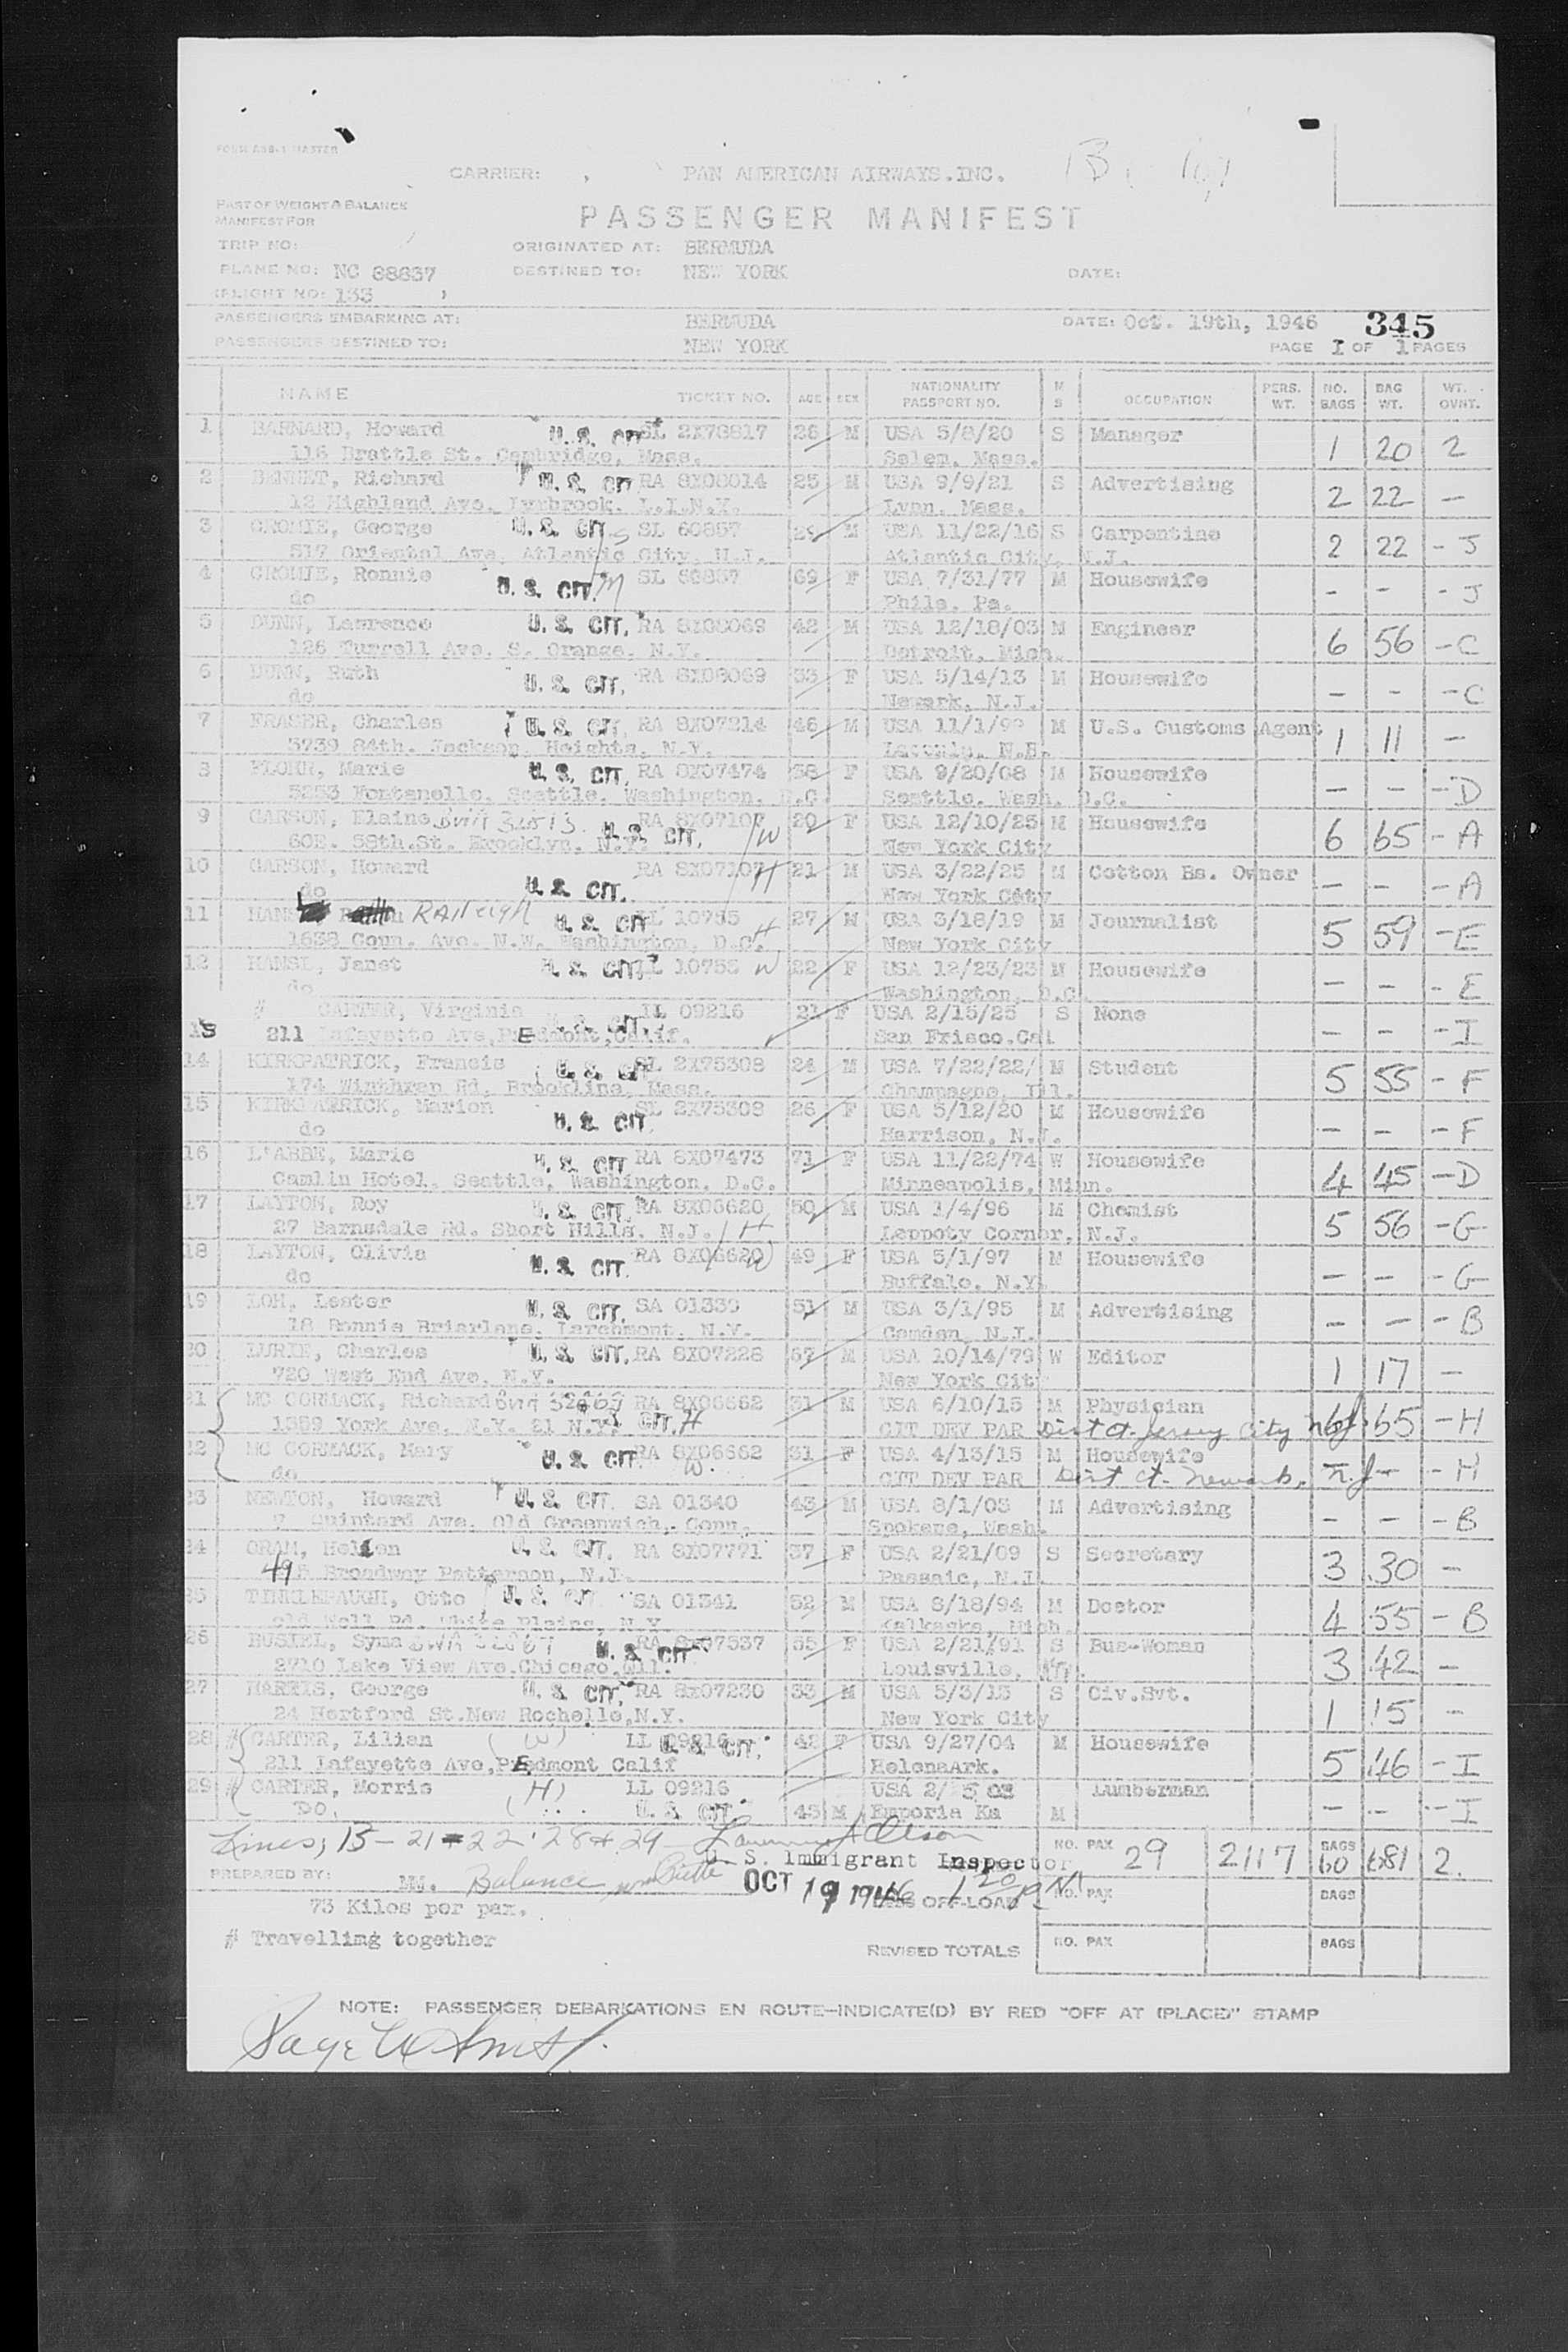 FORM ABB-1 MASTER
CARRIER: PAN AMERICAN AIRWAYS.INC.
PART OF WEIGHT & BALANCE
MANIFEST FOR
PASSENGER MANIFEST
TRIP NO: ORIGINATED AT: BERMUDA
PLANE NO: NC 88837 DESTINED TO: NEW YORK DATE:
FLIGHT NO: 133
PASSENGERS EMBARKING AT: BERMUDA DATE: Oct. 19th, 1946 345
PASSENGERS DESTINED TO: NEW YORK PAGE 1 OF 1 PAGES
NAME TICKET NO. AGE SEX NATIONALITY PASSPORT NO. M S OCCUPATION PERS. WT. NO. BAGS BAG WT. WT. OVNT.
1 BARNARD, Howard U. S. CIT SL 2X78817 26 M USA 5/8/20 S Manager 1 20 2
116 Brattle St. Cambridge, Mass. Salem, Mass.
2 BENNET, Richard U. S. CIT RA 8X08014 25 M USA 9/9/21 S Advertising 2 22 -
12 Highland Ave. Lynbrook. L.I.N.Y. Lynn, Mass.
3 CROMIE, George U. S. CIT. S SL 60857 29 M USA 11/22/16 S Carpentine 2 22 - J
517 Oriental Ave. Atlantic City, N.J. Atlantic City, N.J.
4 CROMIE, Ronnie U. S. CIT. M SL 60857 69 F USA 7/31/77 M Housewife - - - J
do Phila. Pa.
5 DUNN, Lawrence U. S. CIT. RA 8X08069 42 M USA 12/18/03 M Engineer 6 56 - C
126 Turrell Ave. S. Orange. N.Y. Detroit, Mich.
6 DUNN, Ruth U. S. CIT. RA 8X08069 33 F USA 5/14/13 M Housewife - - - C
do Newark, N.J.
7 FRASER, Charles U. S. CIT. RA 8X07214 46 M USA 11/1/99 M U.S. Customs Agent 1 11 -
3739 84th. Jackson, Heights, N.Y. N.H.
8 FLOHR, Marie U. S. CIT. RA 8X07474 38 F USA 9/20/08 M Housewife - - - D
5253 Fontanelle. Seattle. Washington, D.C. Seattle. Wash. D.C.
9 GARSON, Elaine RA 8X07107 U. S. CIT. W 20 F USA 12/10/25 M Housewife 6 65 - A
60E. 58th.St. Brooklyn, N.Y. New York City
10 GARSON, Howard U. S. CIT. RA 8X07107 H 21 M USA 3/22/25 M Cotton Bs. Owner - - - A
do New York City
11 HANSL RAlleigh U. S. CIT LL 10755 H 27 M USA 3/18/19 M Journalist 5 59 - E
1638 Conn. Ave. N.W. Washington, D.C. New York City
12 HANSL, Janet U. S. CIT. LL 10755 W 22 F USA 12/23/23 M Housewife - - - E
do Washington, D.C.
# CARTER, Virginia U. S. CIT. LL 09216 21 F USA 2/15/25 S None - - - I
13 211 Lafayette Ave,PEdmont,Calif. San Frisco.Cal
14 KIRKPATRICK, Francis U. S. CIT SL 2X75308 24 M USA 7/22/22/ M Student 5 55 - F
174 Winthrop Rd, Brookline, Mass. Champagne, Ill.
15 KIRKPATRICK, Marion U. S. CIT. SL 2X75309 26 F USA 5/12/20 M Housewife - - - F
do Harrison, N.J.
16 L'ABBE, Marie U. S. CIT RA 8X07473 71 F USA 11/22/74 W Housewife 4 45 - D
Camlin Hotel. Seattle, Washington, D.C. Minneapolis, Minn.
17 LAYTON, Roy U. S. CIT. RA 8X06620 50 M USA 1/4/96 M Chemist 5 56 - G
27 Barnsdale Rd. Short Hills. N.J. H Leppoty Corner, N.J.
18 LAYTON, Olivia U. S. CIT. RA 8X06620 W 49 F USA 5/1/97 M Housewife - - - G
do Buffalo, N.Y.
19 LOH, Lester U. S. CIT. SA 01339 51 M USA 3/1/95 M Advertising - - - B
18 Bonnie Briarlane. Larchmont, N.Y. Camden, N.J.
20 LURIE, Charles U. S. CIT. RA 8X07228 67 M USA 10/14/79 W Editor 1 17 -
720 West End Ave. N.Y. New York City
21 MC CORMACK, Richard RA 8X06662 31 M USA 6/10/15 M Physician 6 65 - H
1359 York Ave. N.Y. 21 N.Y. CIT. H CIT DEV PAR Dist Ct. Jersey City N.J.
22 MC CORMACK, Mary U. S. CIT RA 8X06662 W. 31 F USA 4/13/15 M Housewife - - - H
do CIT DEV PAR Dist Ct. Newark, N.J.
23 NEWTON, Howard U. S. CIT. SA 01340 43 M USA 8/1/03 M Advertising - - - B
Quintard Ave. Old Greenwich, Conn. Spokane, Wash.
24 ORAM, Helen U. S. CIT. RA 8X07771 37 F USA 2/21/09 S Secretary 3 30 -
Broadway Patterson, N.J. Passaic, N.J.
25 TINKLEPAUGH, Otto U. S. CIT. SA 01341 52 M USA 8/18/94 M Doctor 4 55 - B
Old Mell Rd. White Plains, N.Y. Kalkaska, Mich.
26 BUSIEL, Syma U. S. CIT RA 8X07537 55 F USA 2/21/91 S Bus-Woman 3 42 -
2710 Lake View Ave.Chicago,Ill. Louisville, Ky.
27 HARRIS, George U. S. CIT. RA 8X07230 33 M USA 5/3/13 S Civ.Svt. 1 15 -
24 Hertford St.New Rochelle,N.Y. New York City
28 # CARTER, Lilian (W) LL 09216 U. S. CIT. 42 F USA 9/27/04 M Housewife 5 46 - I
211 Lafayette Ave,PEdmont Calif HelenaArk.
29 # CARTER, Morris (H) LL 09216 USA 2/ Lumberman - - - I
DO. U. S. CIT. 45 M Emporia Ka M
Lines; 13 - 21 - 22 - 28 & 29
U. S. Immigrant Inspector NO. PAX 29 2117 BAGS 60 681 2.
PREPARED BY: MW. Balance
OCT 19 1946 1 20 PM
LESS OFF-LOAD NO. PAX BAGS
73 Kilos per pax.
# Travelling together
REVISED TOTALS NO. PAX BAGS
NOTE: PASSENGER DEBARKATIONS EN ROUTE—INDICATE(D) BY RED "OFF AT (PLACE)" STAMP